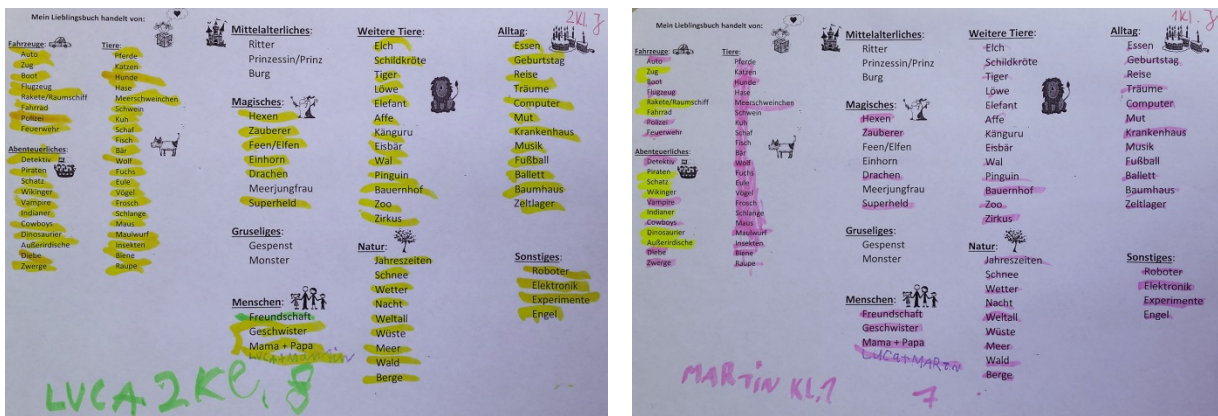 Mein Lieblingsbuch handelt von:
2Kl. J
Fahrzeuge:
Auto
Zug
Boot
Flugzeug
Rakete/Raumschiff
Fahrrad
Polizei
Feuerwehr
Abenteuerliches:
Detektiv
Piraten
Schatz
Wikinger
Vampire
Indianer
Cowboys
Dinosaurier
Außerirdische
Diebe
Zwerge
Tiere:
Pferde
Katzen
Hunde
Hase
Meerschweinchen
Schwein
Kuh
Schaf
Fisch
Bär
Wolf
Fuchs
Eule
Vögel
Frosch
Schlange
Maus
Maulwurf
Insekten
Biene
Raupe
Mittelalterliches:
Ritter
Prinzessin/Prinz
Burg
Magisches:
Hexen
Zauberer
Feen/Elfen
Einhorn
Drachen
Meerjungfrau
Superheld
Gruseliges:
Gespenst
Monster
Menschen:
Freundschaft
Geschwister
Mama + Papa
LUCA+MARtin
Weitere Tiere:
Elch
Schildkröte
Tiger
Löwe
Elefant
Affe
Känguru
Eisbär
Wal
Pinguin
Bauernhof
Zoo
Zirkus
Natur:
Jahreszeiten
Schnee
Wetter
Nacht
Weltall
Wüste
Meer
Wald
Berge
Alltag:
Essen
Geburtstag
Reise
Träume
Computer
Mut
Krankenhaus
Musik
Fußball
Ballett
Baumhaus
Zeltlager
Sonstiges:
Roboter
Elektronik
Experimente
Engel
LUCA 2Kl. 8
Mein Lieblingsbuch handelt von:
1Kl. J
Fahrzeuge:
Auto
Zug
Boot
Flugzeug
Rakete/Raumschiff
Fahrrad
Polizei
Feuerwehr
Abenteuerliches:
Detektiv
Piraten
Schatz
Wikinger
Vampire
Indianer
Cowboys
Dinosaurier
Außerirdische
Diebe
Zwerge
Tiere:
Pferde
Katzen
Hunde
Hase
Meerschweinchen
Schwein
Kuh
Schaf
Fisch
Bär
Wolf
Fuchs
Eule
Vögel
Frosch
Schlange
Maus
Maulwurf
Insekten
Biene
Raupe
Mittelalterliches:
Ritter
Prinzessin/Prinz
Burg
Magisches:
Hexen
Zauberer
Feen/Elfen
Einhorn
Drachen
Meerjungfrau
Superheld
Gruseliges:
Gespenst
Monster
Menschen:
Freundschaft
Geschwister
Mama + Papa
LUCa+MARtin
Weitere Tiere:
Elch
Schildkröte
Tiger
Löwe
Elefant
Affe
Känguru
Eisbär
Wal
Pinguin
Bauernhof
Zoo
Zirkus
Natur:
Jahreszeiten
Schnee
Wetter
Nacht
Weltall
Wüste
Meer
Wald
Berge
Alltag:
Essen
Geburtstag
Reise
Träume
Computer
Mut
Krankenhaus
Musik
Fußball
Ballett
Baumhaus
Zeltlager
Sonstiges:
Roboter
Elektronik
Experimente
Engel
MARtiN KL.1 7